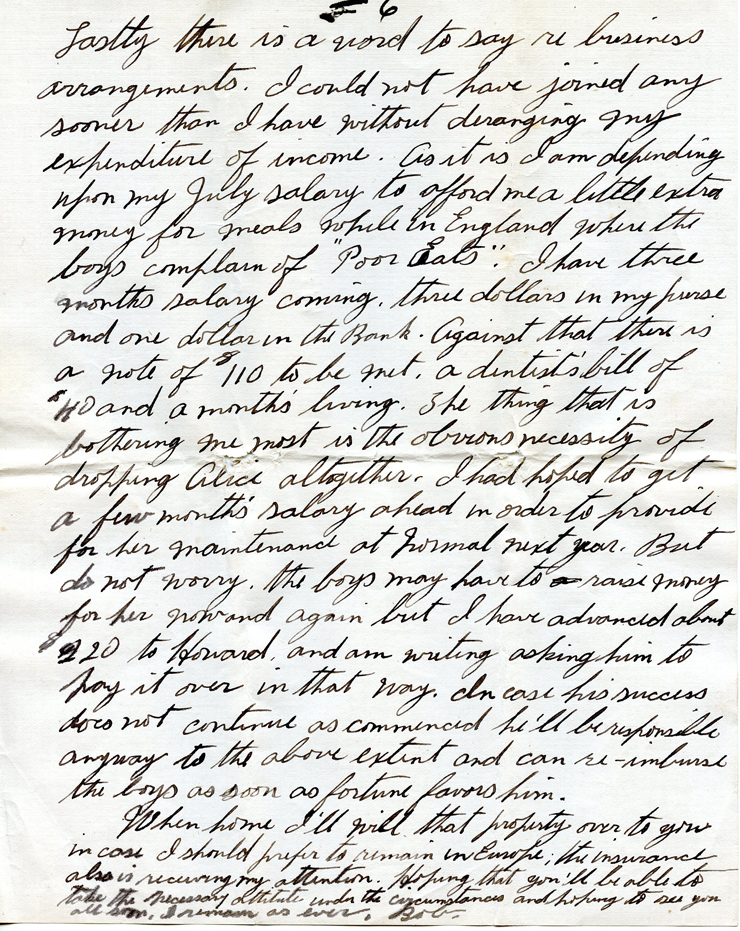 6
Lastly there is a word to say re business
arrangements. I could not have joined any
sooner than I have without deranging my
expenditure of income. As it is I am depending
upon my July salary to afford me a little extra
money for meals while in England where the
boys complain of "Poor Eats". I have three
months salary coming, three dollars in my purse
and one dollar in the Bank. Against that there is
a note of $110 to be met, a dentist's bill of
$40 and a month's living. The thing that is
bothering me most is the obvious necessity of
dropping Alice altogether. I had hoped to get
a few month's salary ahead in order to provide
for her maintenance at Normal next year. But
do not worry. The boys may have to raise money
for her now and again but I have advanced about
$220 to Howard, and am writing asking him to
pay it over in that way. In case his success
does not continue as commenced he'll be responsible
anyway to the above extent and can re-imburse
the boys as soon as fortune favors him.
When home I'll will that property over to you
in case I should prefer to remain in Europe; the insurance
also is receiving my attention. Hoping that you'll be able to
take the necessary attitude under the circumstances and hoping to see you
all soon, I remain as ever, Bob.